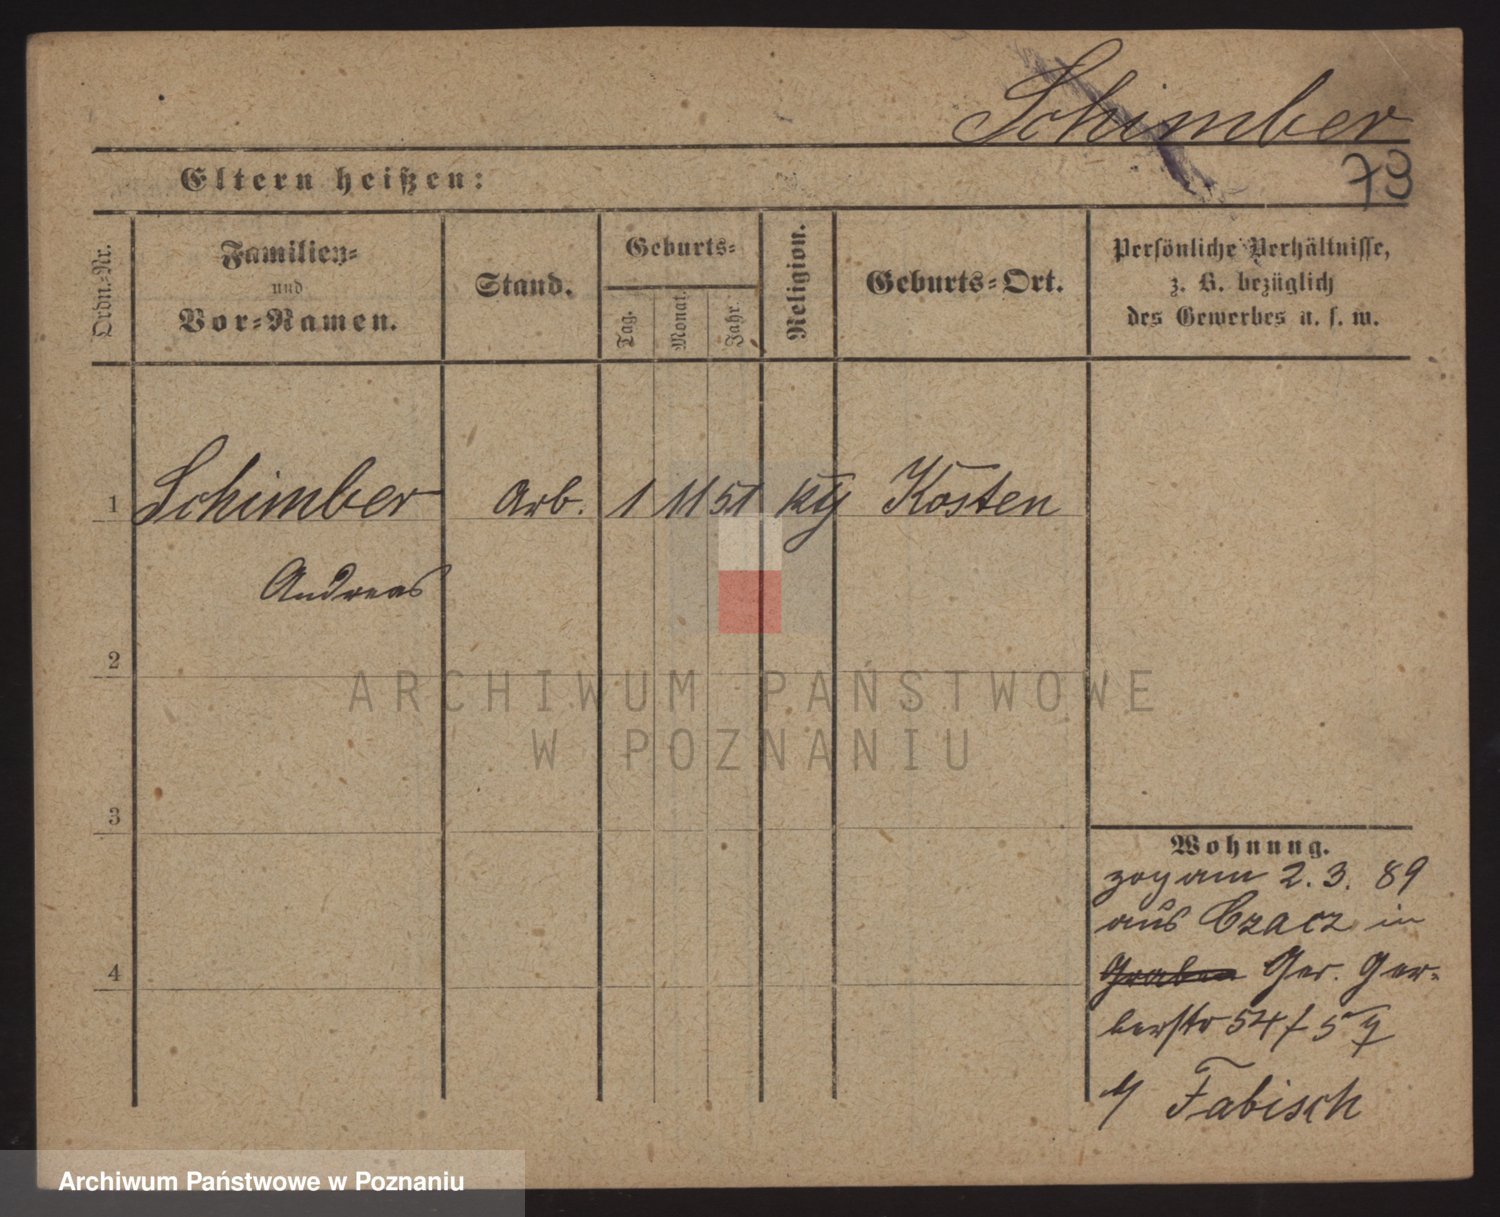 Schimber
73
Eltern heißen:
Ordn.-Nr.
Familien-
und
Vor-Namen.
Stand.
Geburts-
Tag.
Monat.
Jahr.
Religion.
Geburts-Ort.
Persönliche Verhältnisse,
z. B. bezüglich
des Gewerbes u. s. w.
1 Schimber Arb. 1 11 51 Kosten
Andreas
2
3
4
Wohnung.
zog am 2. 3. 89
aus Czacz in
Graben Ger. Ger-
berstr 54
Fabisch
ARCHIWUM PAŃSTWOWE
W POZNANIU
Archiwum Państwowe w Poznaniu